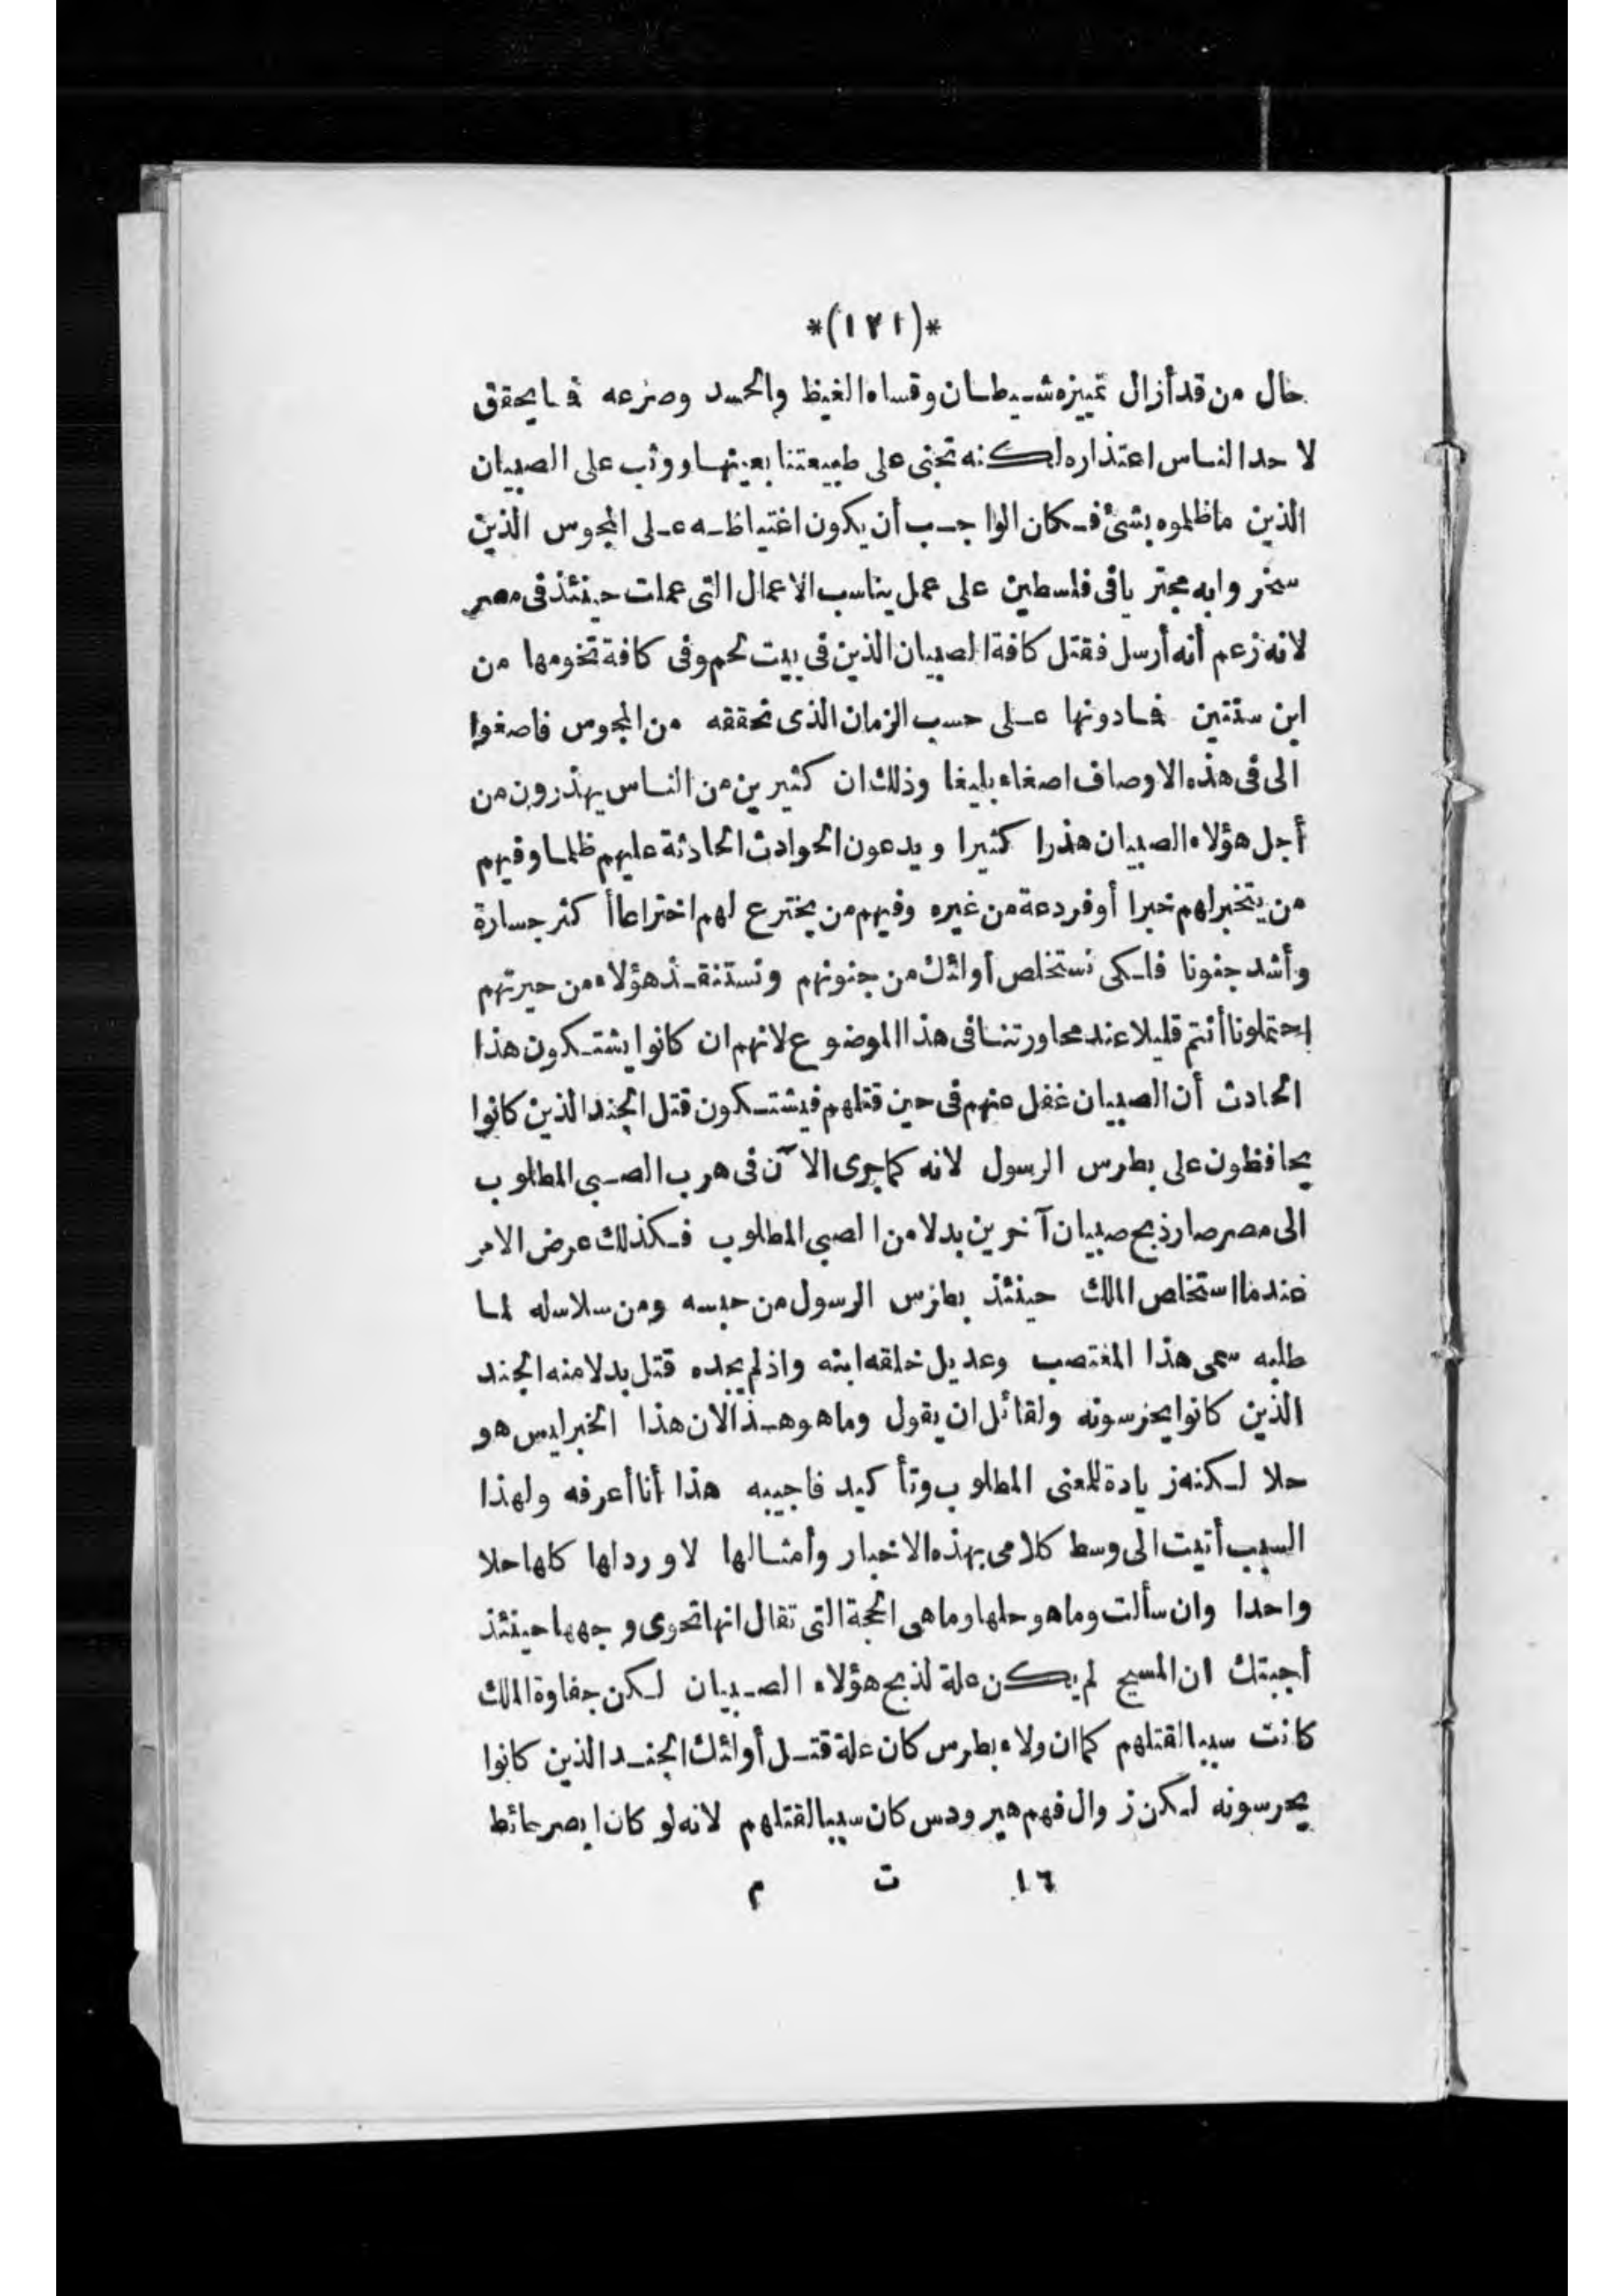 *(١٢١)*
حال من قد أزال تمييزه شيطان وقساه الغيظ والحسد وصرعه فما يحقق
لاحد الناس اعتذاره لكنه تجنى على طبيعتنا بعينها ووثب على الصبيان
الذين ماظلموه بشئ فكان الواجب أن يكون اغتياظه على المجوس الذين
سخروا به مجتريا فى فلسطين على عمل يناسب الاعمال التى عملت حينئذ فى مصر
لانه زعم أنه أرسل فقتل كافة الصبيان الذين فى بيت لحم وفى كافة تخومها من
ابن سنتين فمادونها على حسب الزمان الذى تحققه من المجوس فاصغوا
الى فى هذه الاوصاف اصغاء بليغا وذلك ان كثيرين من الناس يهذرون من
أجل هؤلاء الصبيان هذرا كثيرا ويدعون الحوادث الحادثة عليهم ظلما وفيهم
من يتخبر لهم خبرا أوفر دعة من غيره وفيهم من يخترع لهم اختراعا أكثر جسارة
وأشد جنونا فلكى نستخلص أولئك من جنونهم ونستنقذ هؤلاء من حيرتهم
احتملونا أنتم قليلا عند محاورتنا فى هذا الموضوع لانهم ان كانوا يشتكون هذا
الحادث أن الصبيان غفل عنهم فى حين قتلهم فيشتكون قتل الجند الذين كانوا
يحافظون على بطرس الرسول لانه كما جرى الآن فى هرب الصبى المطلوب
الى مصر صار ذبح صبيان آخرين بدلا من الصبى المطلوب فكذلك عرض الامر
عندما استخلص الملك حينئذ بطرس الرسول من حبسه ومن سلاسله لما
طلبه سمى هذا المغتصب وعديل خلقه ابنه واذ لم يجده قتل بدلا منه الجند
الذين كانوا يحرسونه ولقائل ان يقول وما هو هذا لان هذا الخبر ليس هو
حلا لكنه زيادة للمعنى المطلوب وتأكيد فاجيبه هذا أنا أعرفه ولهذا
السبب أتيت الى وسط كلامى بهذه الاخبار وأمثالها لاورد لها كلها حلا
واحدا وان سألت وما هو حلها وما هى الحجة التى تقال انها تحوى وجهها حينئذ
أجبتك ان المسيح لم يكن علة لذبح هؤلاء الصبيان لكن جفاوة الملك
كانت سببا لقتلهم كما ان ولاء بطرس كان علة قتل أولئك الجند الذين كانوا
يحرسونه لكن زوال فهم هيرودس كان سببا لقتلهم لانه لو كان ابصر حائط
١٦ ت م